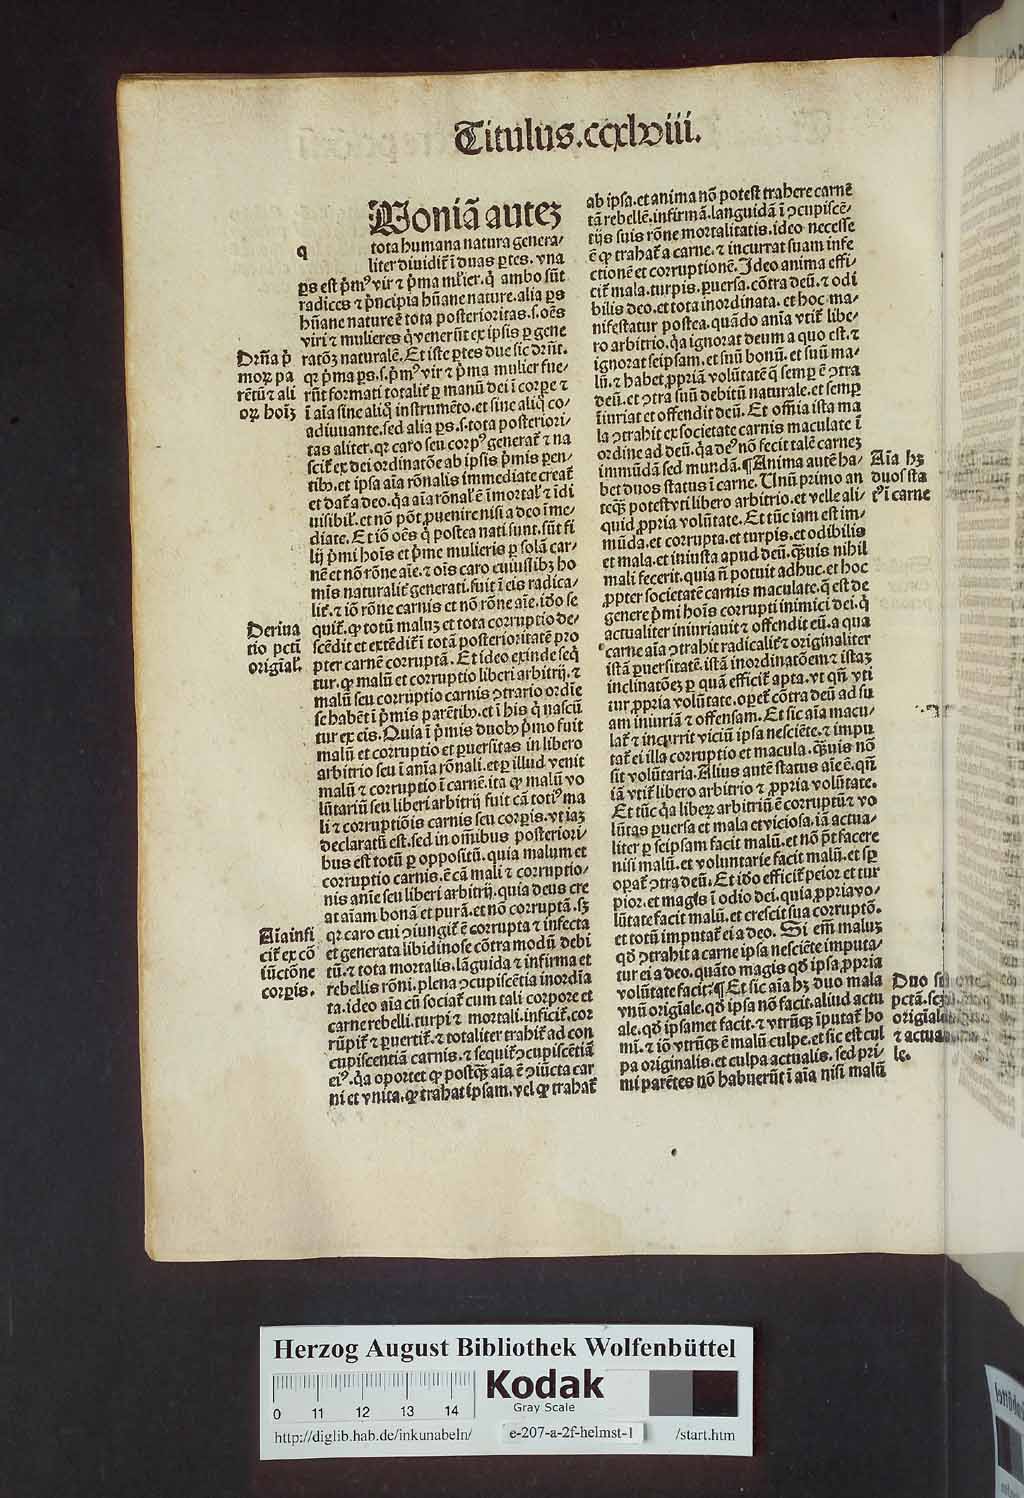 Titulus.ccxlviii.
q
Woniã autez
tota humana natura genera/
liter diuidit᷑ ĩ duas ꝑtes. vna
ꝑs est p̃mꝰ vir ⁊ p̃ma mĺier. q̃ ambo sũt
radices ⁊ p̃ncipia hũane nature. alia ꝑs
hũane nature ẽ tota posterioritas. s. oẽs
viri ⁊ mulieres q̃ venerũt ex ipsis ꝑ gene
ratõꝫ naturalẽ. Et iste ꝑtes due sic drñt.
qꝛ p̃ma ꝑs. s. p̃mꝰ vir ⁊ p̃ma mulier fue/
rũt formati totalit᷑ ꝑ manũ dei ĩ corꝑe ⁊
ĩ aĩa sine aliq̃ instrumẽto. et sine aliq̃ co/
adiuuante. sed alia ꝑs. s. tota posteriori/
tas aliter. qꝛ caro seu corpꝰ generat᷑ ⁊ na
scit᷑ ex dei ordinatõe ab ipsis p̃mis ꝑen/
tibꝫ. et ipsa aĩa rõnalis immediate creat᷑
et dat᷑ a deo. q̃a aĩa rõnaĺ ẽ ĩmortaĺ ⁊ ĩdi
uisibiĺ. et nõ põt ꝓuenire nisi a deo ĩme/
diate. Et iõ oẽs q̃ postea nati sunt. sũt fi
lij p̃mi hoĩs et p̃me mulieris ꝑ solã car/
nẽ et nõ rõne aĩe. ⁊ oĩs caro cuiuslibꝫ ho
mis naturalit᷑ generati. fuit ĩ eis radica/
lit᷑. ⁊ iõ rõne carnis et nõ rõne aĩe. idõ se
quit᷑. ꝙ totũ maluꝫ et tota corruptio de/
scẽdit et extẽdit᷑ ĩ totã posterioritatẽ pro
pter carnẽ corruptã. Et ideo exinde seq̃
tur. ꝙ malũ et corruptio liberi arbitrij. ⁊
malũ seu corruptio carnis ↄtrario ordĩe
se habẽt ĩ p̃mis parẽtibꝫ. et ĩ his q̃ nascũ
tur ex eis. Quia ĩ p̃mis duobꝫ p̃mo fuit
malũ et corruptio et ꝑuersitas in libero
arbitrio seu ĩ anĩa rõnali. et ꝑ illud venit
malũ ⁊ corruptio ĩ carnẽ. ita ꝙ malũ vo
lũtariũ seu liberi arbitrij fuit cã totiꝰ ma
li ⁊ corruptiõis carnis seu corꝑis. vt iaꝫ
declaratũ est. sed in om̃ibus posteriori/
bus est totũ ꝑ oppositũ. quia malum et
corruptio carnis. ẽ cã mali ⁊ corruptio/
nis anĩe seu liberi arbitrij. quia deus cre
at aĩam bonã et purã. et nõ corruptã. sꝫ
qꝛ caro cui ↄiungit᷑ ẽ corrupta ⁊ infecta
et generata libidinose cõtra modũ debi
tũ. ⁊ tota mortalis. lãguida ⁊ infirma et
rebellis rõni. plena ↄcupiscẽtia inordĩa
ta. ideo aĩa cũ sociat᷑ cum tali corpore et
carne rebelli. turpi ⁊ mortali. inficit᷑. cor
rũpit᷑ ⁊ ꝑuertit᷑. ⁊ totaliter trahit᷑ ad con
cupiscentiã carnis. ⁊ sequit᷑ ↄcupiscẽtiã
eiꝰ. q̃a oportet ꝙ postq̃ꝫ aĩa ẽ ↄiũcta car
ni et vnita. ꝙ trahat ipsam. vel ꝙ trahat᷑
Drña p̃
moꝝ pa
rẽtũ ⁊ ali
oꝝ hoĩꝫ
Deriua
tio pcti
origiaĺ.
Aĩa infi
cit᷑ ex cõ
iũctõne
corꝑis.
ab ipsa. et anima nõ potest trahere carnẽ
tã rebellẽ. infirmã. languidã ĩ ↄcupiscẽ/
tijs suis rõne mortalitatis. ideo necesse
ẽ ꝙ trahat᷑ a carne. ⁊ incurrat suam infe
ctionẽ et corruptionẽ. Ideo anima effi/
cit᷑ mala. turpis. ꝑuersa. cõtra deũ. ⁊ odi
bilis deo. et tota inordinata. et hoc ma/
nifestatur postea. quãdo anĩa vtit᷑ libe/
ro arbitrio. q̃a ignorat deum a quo est. ⁊
ignorat seipsam. et suũ bonũ. et suũ ma/
lũ. ⁊ habet ꝓpriã volũtatẽ q̃ semꝑ ẽ ↄtra
deũ. et ↄtra suũ debitũ naturale. et semꝑ
ĩiuriat et offendit deũ. Et om̃ia ista ma
la ↄtrahit ex societate carnis maculate ĩ
ordine ad deũ. q̃a deꝰ nõ fecit talẽ carneꝫ
immũdã sed mundã. ¶Anima autẽ ha/
bet duos status ĩ carne. Unũ primo an
teq̃ꝫ potest vti libero arbitrio. et velle ali/
quid ꝓpria volũtate. Et tũc iam est im/
mũda. et corrupta. et turpis. et odibilis
et mala. et iniusta apud deũ. q̃ꝫuis nihil
mali fecerit. quia ñ potuit adhuc. et hoc
ꝓpter societatẽ carnis maculate. q̃ est de
genere p̃mi hoĩs corrupti inimici dei. q̃
actualiter iniuriauit ⁊ offendit eũ. a qua
carne aĩa ↄtrahit radicalit᷑ ⁊ originaliter
istã ꝑuersitatẽ. istã inordinatõem ⁊ istaꝫ
inclinatõeꝫ ꝑ quã efficit᷑ apta. vt qñ vti
tur ꝓpria volũtate. oꝑet᷑ cõtra deũ ad su
am iniuriã ⁊ offensam. Et sic aĩa macu/
lat᷑ ⁊ incurrit viciũ ipsa nesciẽte. ⁊ impu
tat᷑ ei illa corruptio et macula. q̃ꝫuis nõ
sit volũtaria. Alius autẽ status aĩe ẽ. qñ
iã vtit᷑ libero arbitrio ⁊ ꝓpria volũtate.
Et tũc q̃a libeꝝ arbitriũ ẽ corruptũ ⁊ vo
lũtas ꝑuersa et mala et viciosa. iã actua/
liter ꝑ seipsam facit malũ. et nõ põt facere
nisi malũ. et voluntarie facit malũ. et sꝑ
oꝑat᷑ ↄtra deũ. Et idõ efficit᷑ peior et tur
pior. et magis ĩ odio dei. quia ꝓpria vo/
lũtate facit malũ. et crescit sua corruptõ.
et totũ imputat᷑ ei a deo. Si em̃ maluꝫ
qd̃ ↄtrahit a carne ipsa nesciẽte imputa/
tur ei a deo. quãto magis qd̃ ipsa ꝓpria
volũtate facit? ¶Et sic aĩa hꝫ duo mala
vnũ origĩale. qd̃ ipsa nõ facit. aliud actu
ale. qd̃ ipsamet facit. ⁊ vtrũqꝫ ĩputat᷑ ho
mĩ. ⁊ iõ vtrũqꝫ ẽ malũ culpe. et sic est cul
pa originalis. et culpa actualis. sed pri/
mi parẽtes nõ habuerũt ĩ aĩa nisi malũ
Aĩa hꝫ
duos sta
tꝰ ĩ carne
Duo
pctã.
origĩale
⁊ actua
le.
Herzog August Bibliothek Wolfenbüttel
0 11 12 13 14
Kodak
Gray Scale
http://diglib.hab.de/inkunabeln/ e-207-a-2f-helmst-1 /start.htm